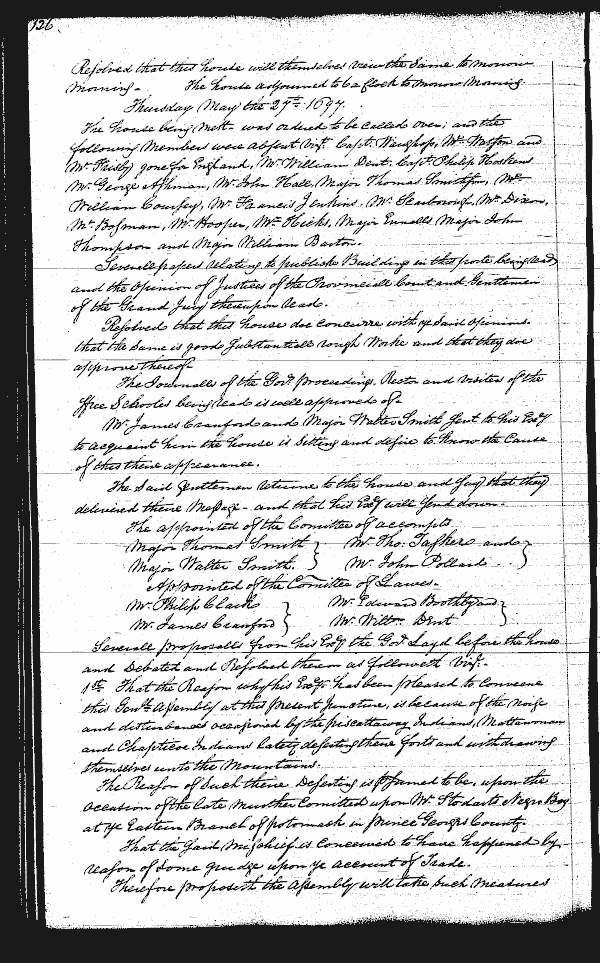 126
Resolved that this house will themselves view the Same to morrow
morning. The house adjourned to 6 a Clock to morrow Morning
Thursday May the 27th 1697.
The house being mett was ordered to be called over; and the
following Members were absent vizt. Capt.
Mr gone for England, Mr William Dent, Capt Philip Hoskens
Mr George Ashman, Mr John Hall, Major Thomas Smithson, Mr
William Coursey, Mr Francis Jenkins, Mr Scarborough, Mr Dixon,
Mr Bosman, Mr Hooper, Mr Hicks, Major Ennalls Major John
Thompson and Major William Barton.
Severall papers relating to publick Buildings in this porte being read
and the Opinion of Justices of the Provinciall Court and Gentlemen
of the Grand Jury thereupon Read.
Resolved that this house doe concurre with ye Said opinions
that the same is good Substantiall rough Worke and that they doe
approve thereof
The Journalls of the Govr. proceedings, Rector and visitors of the
ffree Schooles being read is well approved of
Mr James Cranford and Major Walter Smith Sent to his Exy
to acquaint him the house is Sitting and desire to know the Cause
of this there appearance.
The Said Gentlemen returne to the house and Say that they
delivered there Message and that his Exy will Send down.
The appointed of the Comittee of accompts
Major Thomas Smith } Mr Tho: Taskers and }
Major Walter Smith. } Mr John Pollard }
Appointed of the Comittee of Lawes.
Mr Philip Clark } Mr Edward Boothby and }
Mr James Cranford } Mr Willm. Dent }
Severall proposalls from his Exy the Govr Layd before the house
and Debated and Resolved thereon as followeth vizt.
1st That the Reason why his Exy has been pleased to Convene
this Genll Assembly at this present juncture, is because of the noise
and disturbances occasioned by the piscattaway Indians, Mattawoman
and Chapticoe Indians lately deserting there forts and withdrawing
themselves unto the Mountains.
The Reason of Such there Deserting is psumed to be, upon the
occasion of the late murther Comitted upon Mr Stodarts Negro Boy
at ye Eastern Branch of potomack in prince Georges County.
That the Said Mischief is conceived to have happened by
reason of Some grudge upon ye account of Trade.
Therefore proposest the assembly will take Such measures